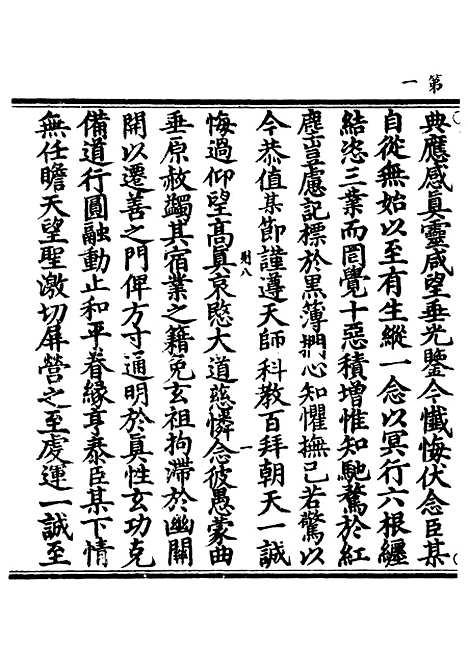 第一
典應感真靈咸望垂光鑒今懺悔伏念臣某
自從無始以至有生縱一念以冥行六根纒
結恣三業而罔覺十惡積增惟知馳騖於紅
塵豈慮記標於黒簿捫心知懼撫己若驚以
今恭值某節謹遵天師科教百拜朝天一誠
則八 一
悔過仰望髙真哀愍大道慈憐念彼愚蒙曲
垂原赦蠲其宿業之籍免玄祖拘滯於幽關
開以遷善之門俾方寸通明於真性玄功克
備道行圓融動止和平眷緣亨泰臣某下情
無任瞻天望聖激切屏營之至虔運一誠至